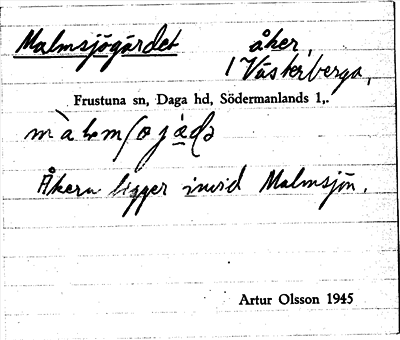 Malmsjögärdet åker,
1 Västerberga,
Frustuna sn, Daga hd, Södermanlands l,.
Åkern ligger invid Malmsjön.
Artur Olsson 1945